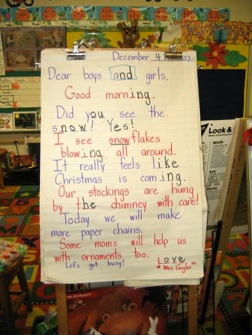 December 4
Dear boys and girls,
Good morning.
Did you see the
snow! Yes!
I see snowflakes
blowing all around.
It really feels like
Christmas is coming.
Our stockings are hung
by the chimney with care!
Today we will make
more paper chains.
Some moms will help us
with ornaments, too.
Let's get busy!
Love,
Mrs.
Look &